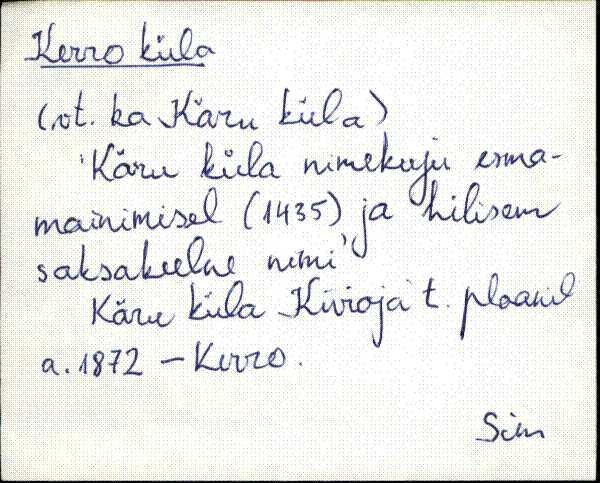 Kerro küla
(vt. ka Käru küla)
'Käru küla nimekuju esma-
mainimisel (1435) ja hilisem
saksakeelne nimi'
Käru küla Kivioja t. plaanil
a. 1872 – Kerro.
Sim